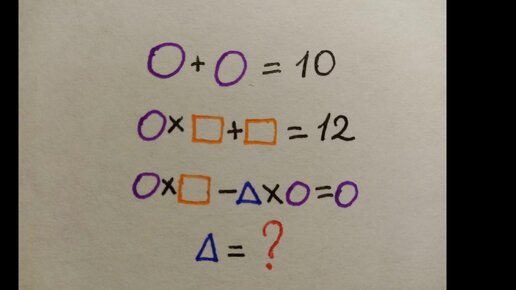 ○ + ○ = 10
○ × □ + □ = 12
○ × □ − △ × ○ = ○
△ = ?